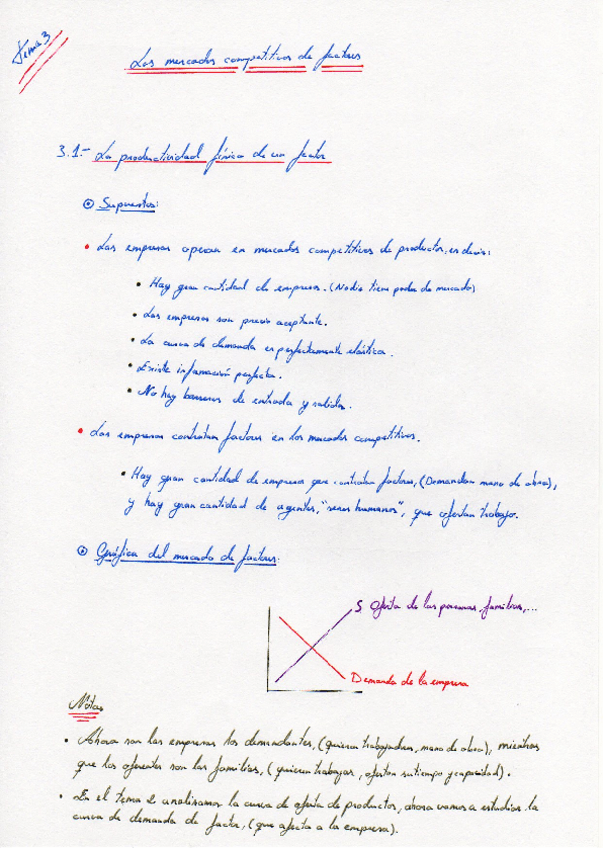 Tema 3
Los mercados competitivos de factores
3.1.- La productividad física de un factor
Supuestos:
Las empresas operan en mercados competitivos de productos, es decir:
Hay gran cantidad de empresas. (Nadie tiene poder de mercado)
Las empresas son precio aceptante.
La curva de demanda es perfectamente elástica.
Existe información perfecta.
No hay barreras de entrada y salida.
Las empresas contratan factores en los mercados competitivos.
Hay gran cantidad de empresas que contratan factores, (Demandan mano de obra),
y hay gran cantidad de agentes, "seres humanos", que ofertan trabajo.
Gráfica del mercado de factores:
S, oferta de las personas, familias, ...
Demanda de la empresa
Notas
Ahora son las empresas los demandantes, (quieren trabajadores, mano de obra), mientras
que los oferentes son las familias, (quieren trabajar, ofertan su tiempo y capacidad).
En el tema 2 analizamos la curva de oferta de productos, ahora vamos a estudiar la
curva de demanda de factor, (que afecta a la empresa).